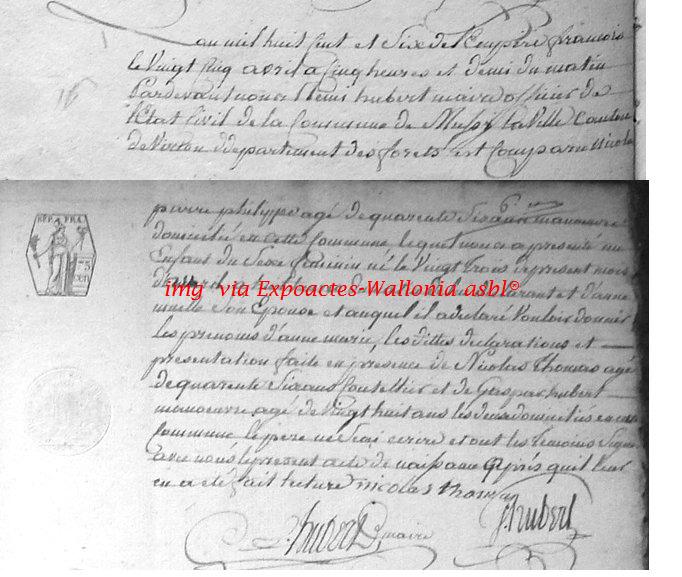 an mil huit cent et Six de l'empire francois
le vingt cinq avril a cinq heures et demi du matin
Pardevant nous Remi hubert maire officier de
l'Etat Civil de la Commune de Mussy la ville Canton
de Virton département des forets est comparu Nicolas
16
6.
pierre philippe agé de quarente Six ans manoeuvre
domicilié en cette Commune lequel nous a presenté un
Enfant du Sexe feminin né le Vingt trois du present mois
REP. FRA.
75
img via Expoactes-Wallonia asbl©
d'avril declarant et d'anne
Son Epouse et auquel il a declaré vouloir donner
Les prenoms d'anne marie, les dittes declarations et
presentation faite en presence de Nicolas Thomas agé
de quarente Six ans Coutellier et de Gaspar hubert
manoeuvre agé de vingt huit ans les deux domiciliés en cette
Commune le pere ne Scai ecrire et ont les temoins Signé
avec nous le present acte de naissance après quil leur
en a eté fait lecture nicolas thomas
R. hubert maire
G. hubert